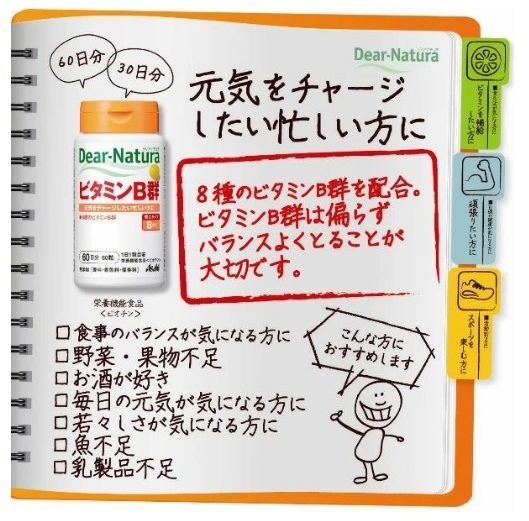 60日分
30日分
Dear-Natura
元気をチャージ
したい忙しい方に
Dear-Natura
ビタミンB群
元気をチャージしたい忙しい方に
60日分 60粒
1日1粒目安
Asahi
8種のビタミンB群を配合。
ビタミンB群は偏らず
バランスよくとることが
大切です。
栄養機能食品
<ビオチン>
□食事のバランスが気になる方に
□野菜・果物不足
□お酒が好き
□毎日の元気が気になる方に
□若々しさが気になる方に
□魚不足
□乳製品不足
こんな方に
おすすめします
ビタミンを補給
したい方に
頑張りたい方に
スポーツを
楽しむ方に